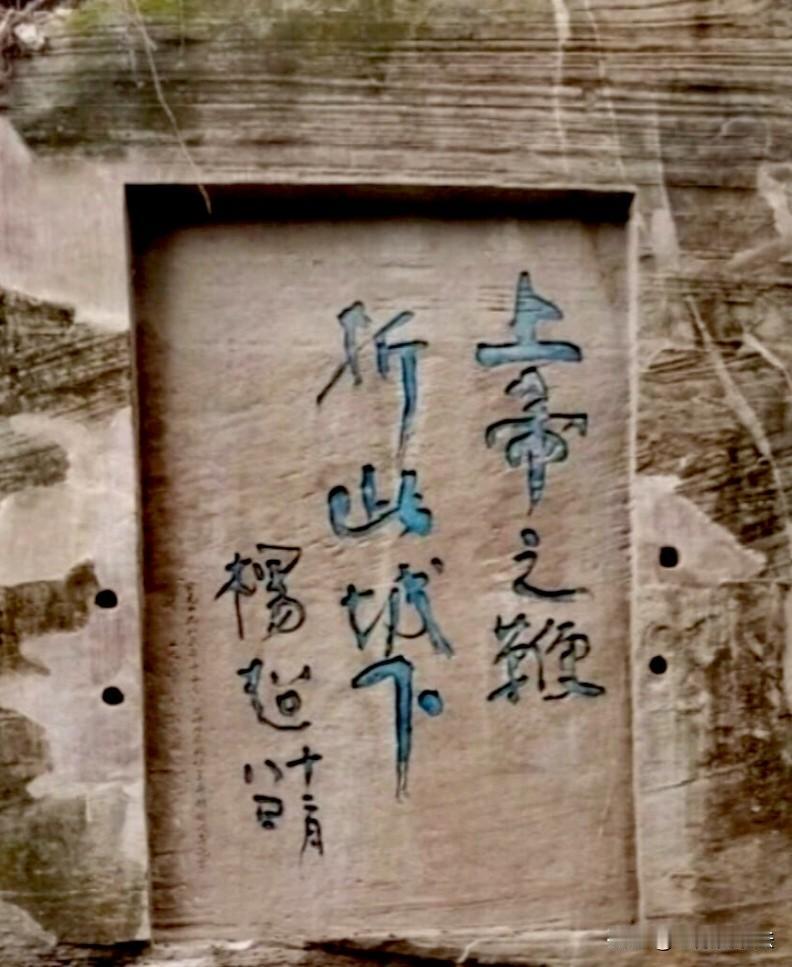 上帝之鞭
折此城下
楊超
十二月
八日